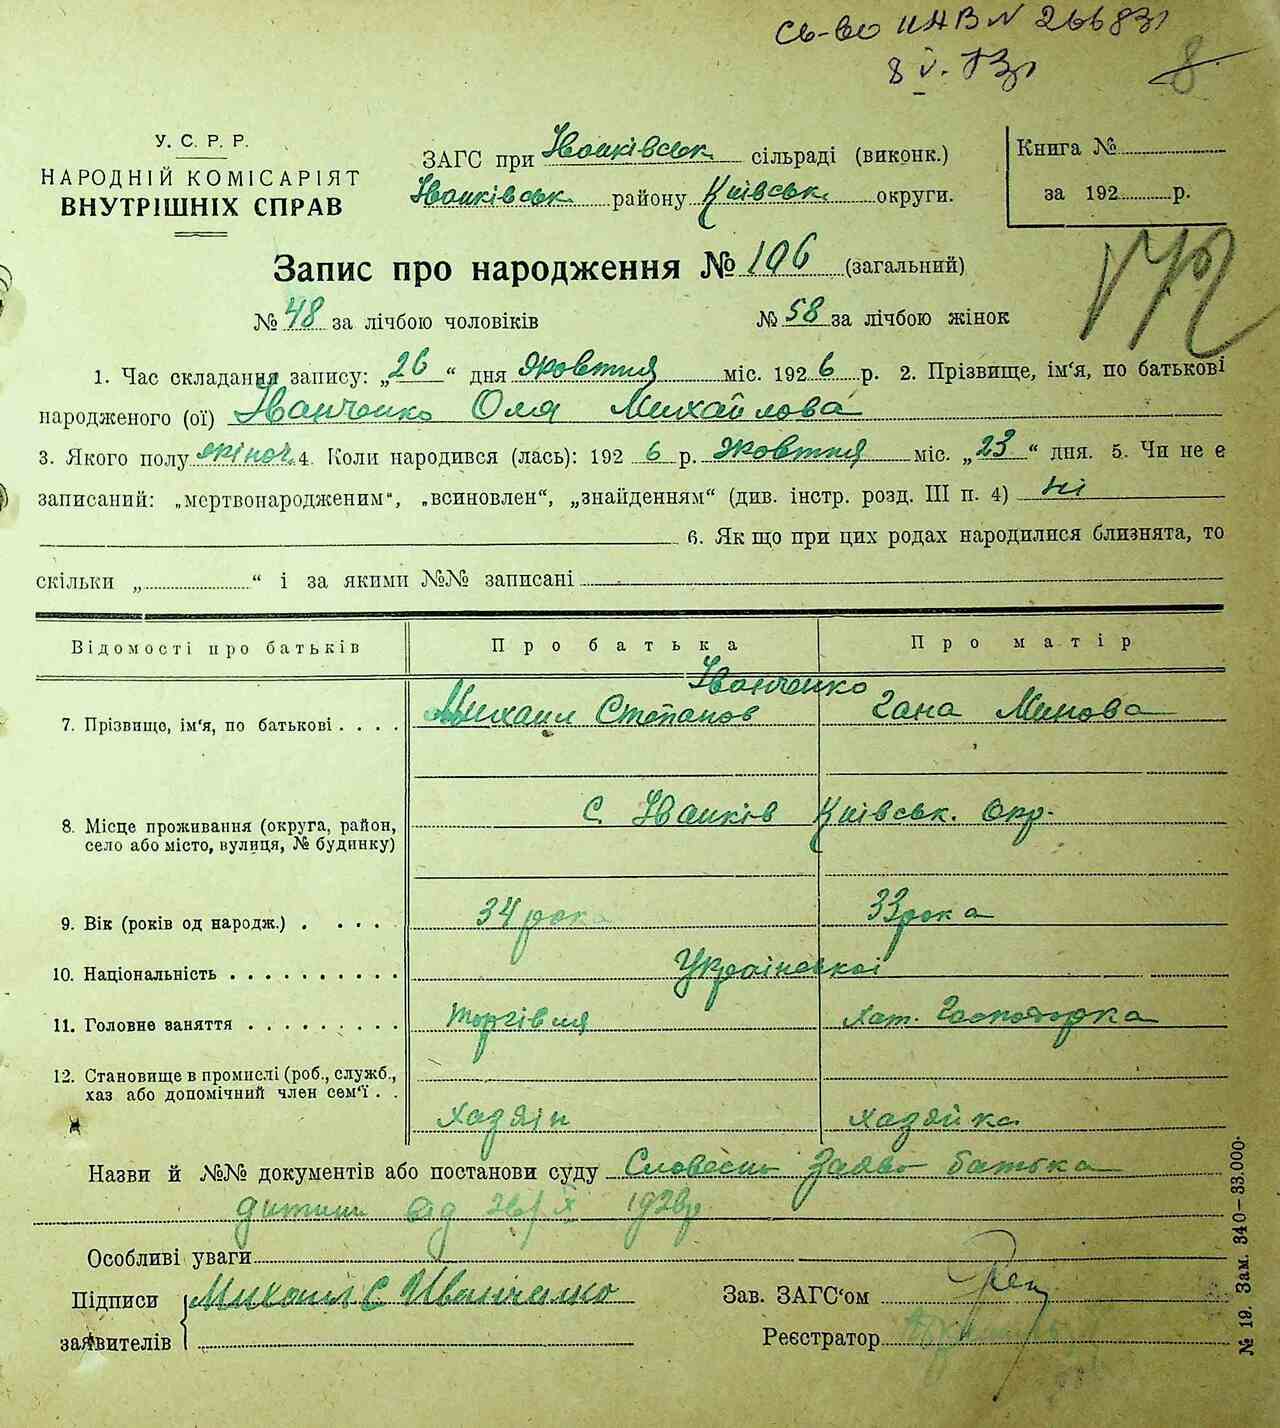 св-во IIАВ № 266831
8 V. 73г
8
У. С. Р. Р.
НАРОДНІЙ КОМІСАРІЯТ
ВНУТРІШНІХ СПРАВ
ЗАГС при Іванківськ. сільраді (виконк.)
Іванківськ. району Київськ. округи.
Книга №
за 192 р.
Запис про народження № 106 (загальний)
№ 48 за лічбою чоловіків № 58 за лічбою жінок
1. Час складання запису: „26“ дня Жовтня міс. 1926 р. 2. Прізвище, ім'я, по батькові
народженого (ої) Іванченко Оля Михайлова
3. Якого полу жіноч. 4. Коли народився (лась): 1926 р. Жовтня міс. „23“ дня. 5. Чи не є
записаний: „мертвонародженим“, „всиновлен“, „знайденням“ (див. інстр. розд. III п. 4) ні
6. Як що при цих родах народилися близнята, то
скільки „ “ і за якими №№ записані
Відомості про батьків Про батька Про матір
Іванченко
7. Прізвище, ім'я, по батькові . . . . Михаил Степанов Гана Минова
8. Місце проживання (округа, район, с. Іванків Київськ. окр.
село або місто, вулиця, № будинку)
9. Вік (років од народж.) . . . . . 34 рока 33 рока
10. Національність . . . . . . . . . . Української
11. Головне заняття . . . . . . . . . Торгівля Хат. Господарка
12. Становище в промислі (роб., служб.,
хаз або допомічний член сем'ї . .
Хазяїн Хазяйка
Назви й №№ документів або постанови суду Словесна Заява батька
дитини від 26/X 1926р.
Особливі уваги
Підписи Михаил С Иванченко Зав. ЗАГС'ом
заявителів Реєстратор
№ 19. Зам. 340—33.000.